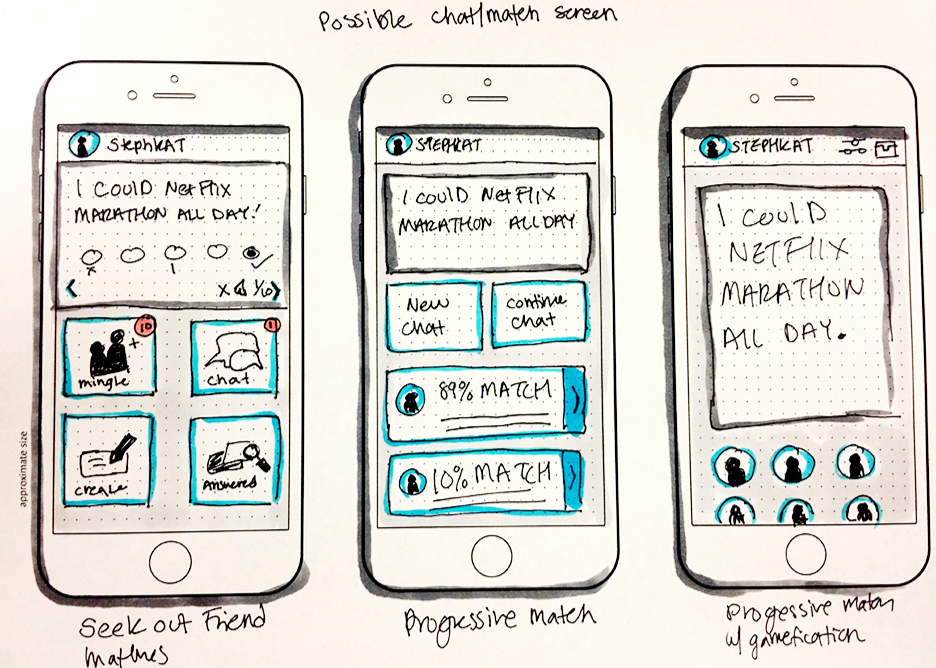 Possible chat/match screen
StephKAT
I COULD NETFLIX
MARATHON ALL DAY!
10
11
mingle
chat
create
Answered
approximate size
Seek out Friend
STEPHKAT
I COULD NETFLIX
MARATHON ALL DAY
New
Chat
continue
chat
89% MATCH
10% MATCH
Progressive match
STEPHKAT
I COULD
NETFLIX
MARATHON
ALL DAY.
Progressive match
w/ gamefication